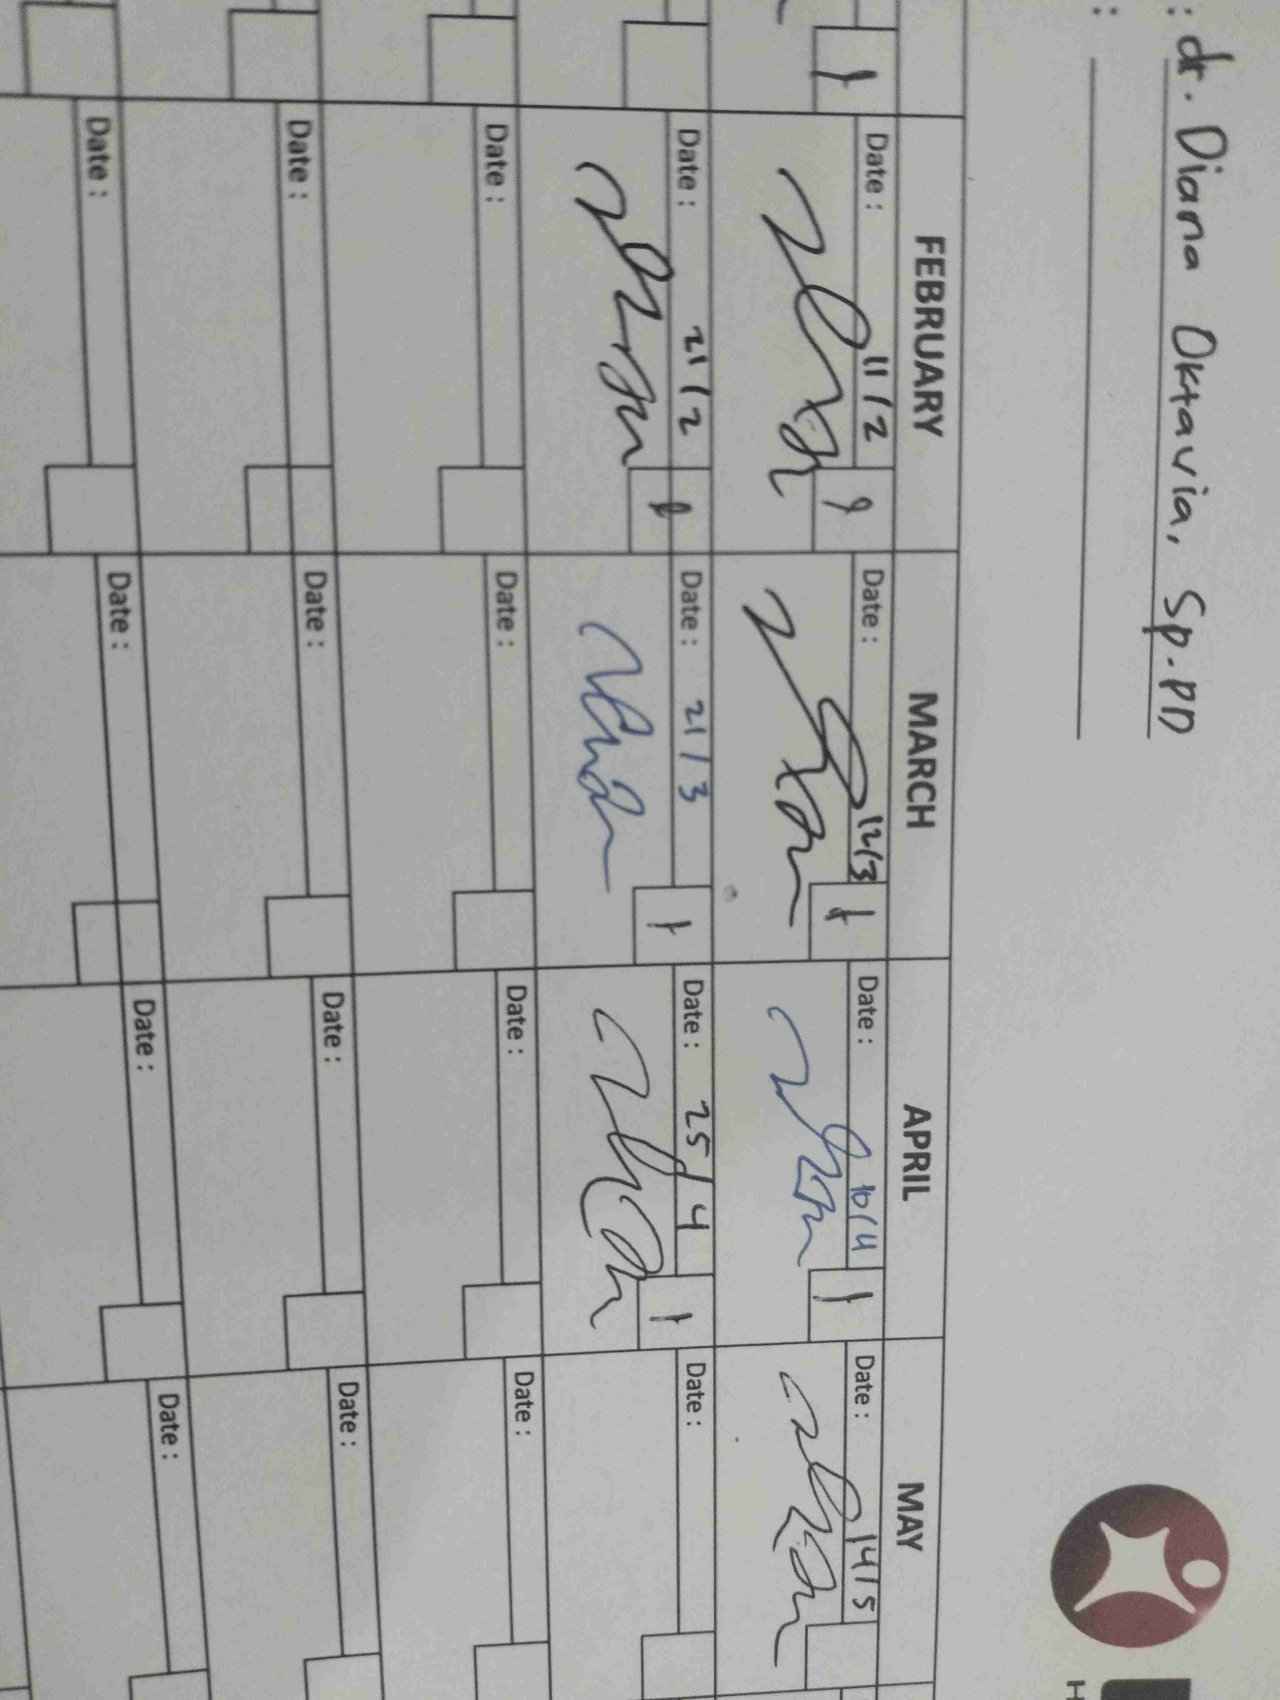 : dr. Diana Oktavia, Sp.PD
:
FEBRUARY MARCH APRIL MAY
Date : 11/2 Date : 12/3 Date : 10/4 Date : 14/5
Date : 21/2 Date : 21/3 Date : 25/4 Date :
Date : Date : Date : Date :
Date : Date : Date : Date :
Date : Date : Date : Date :